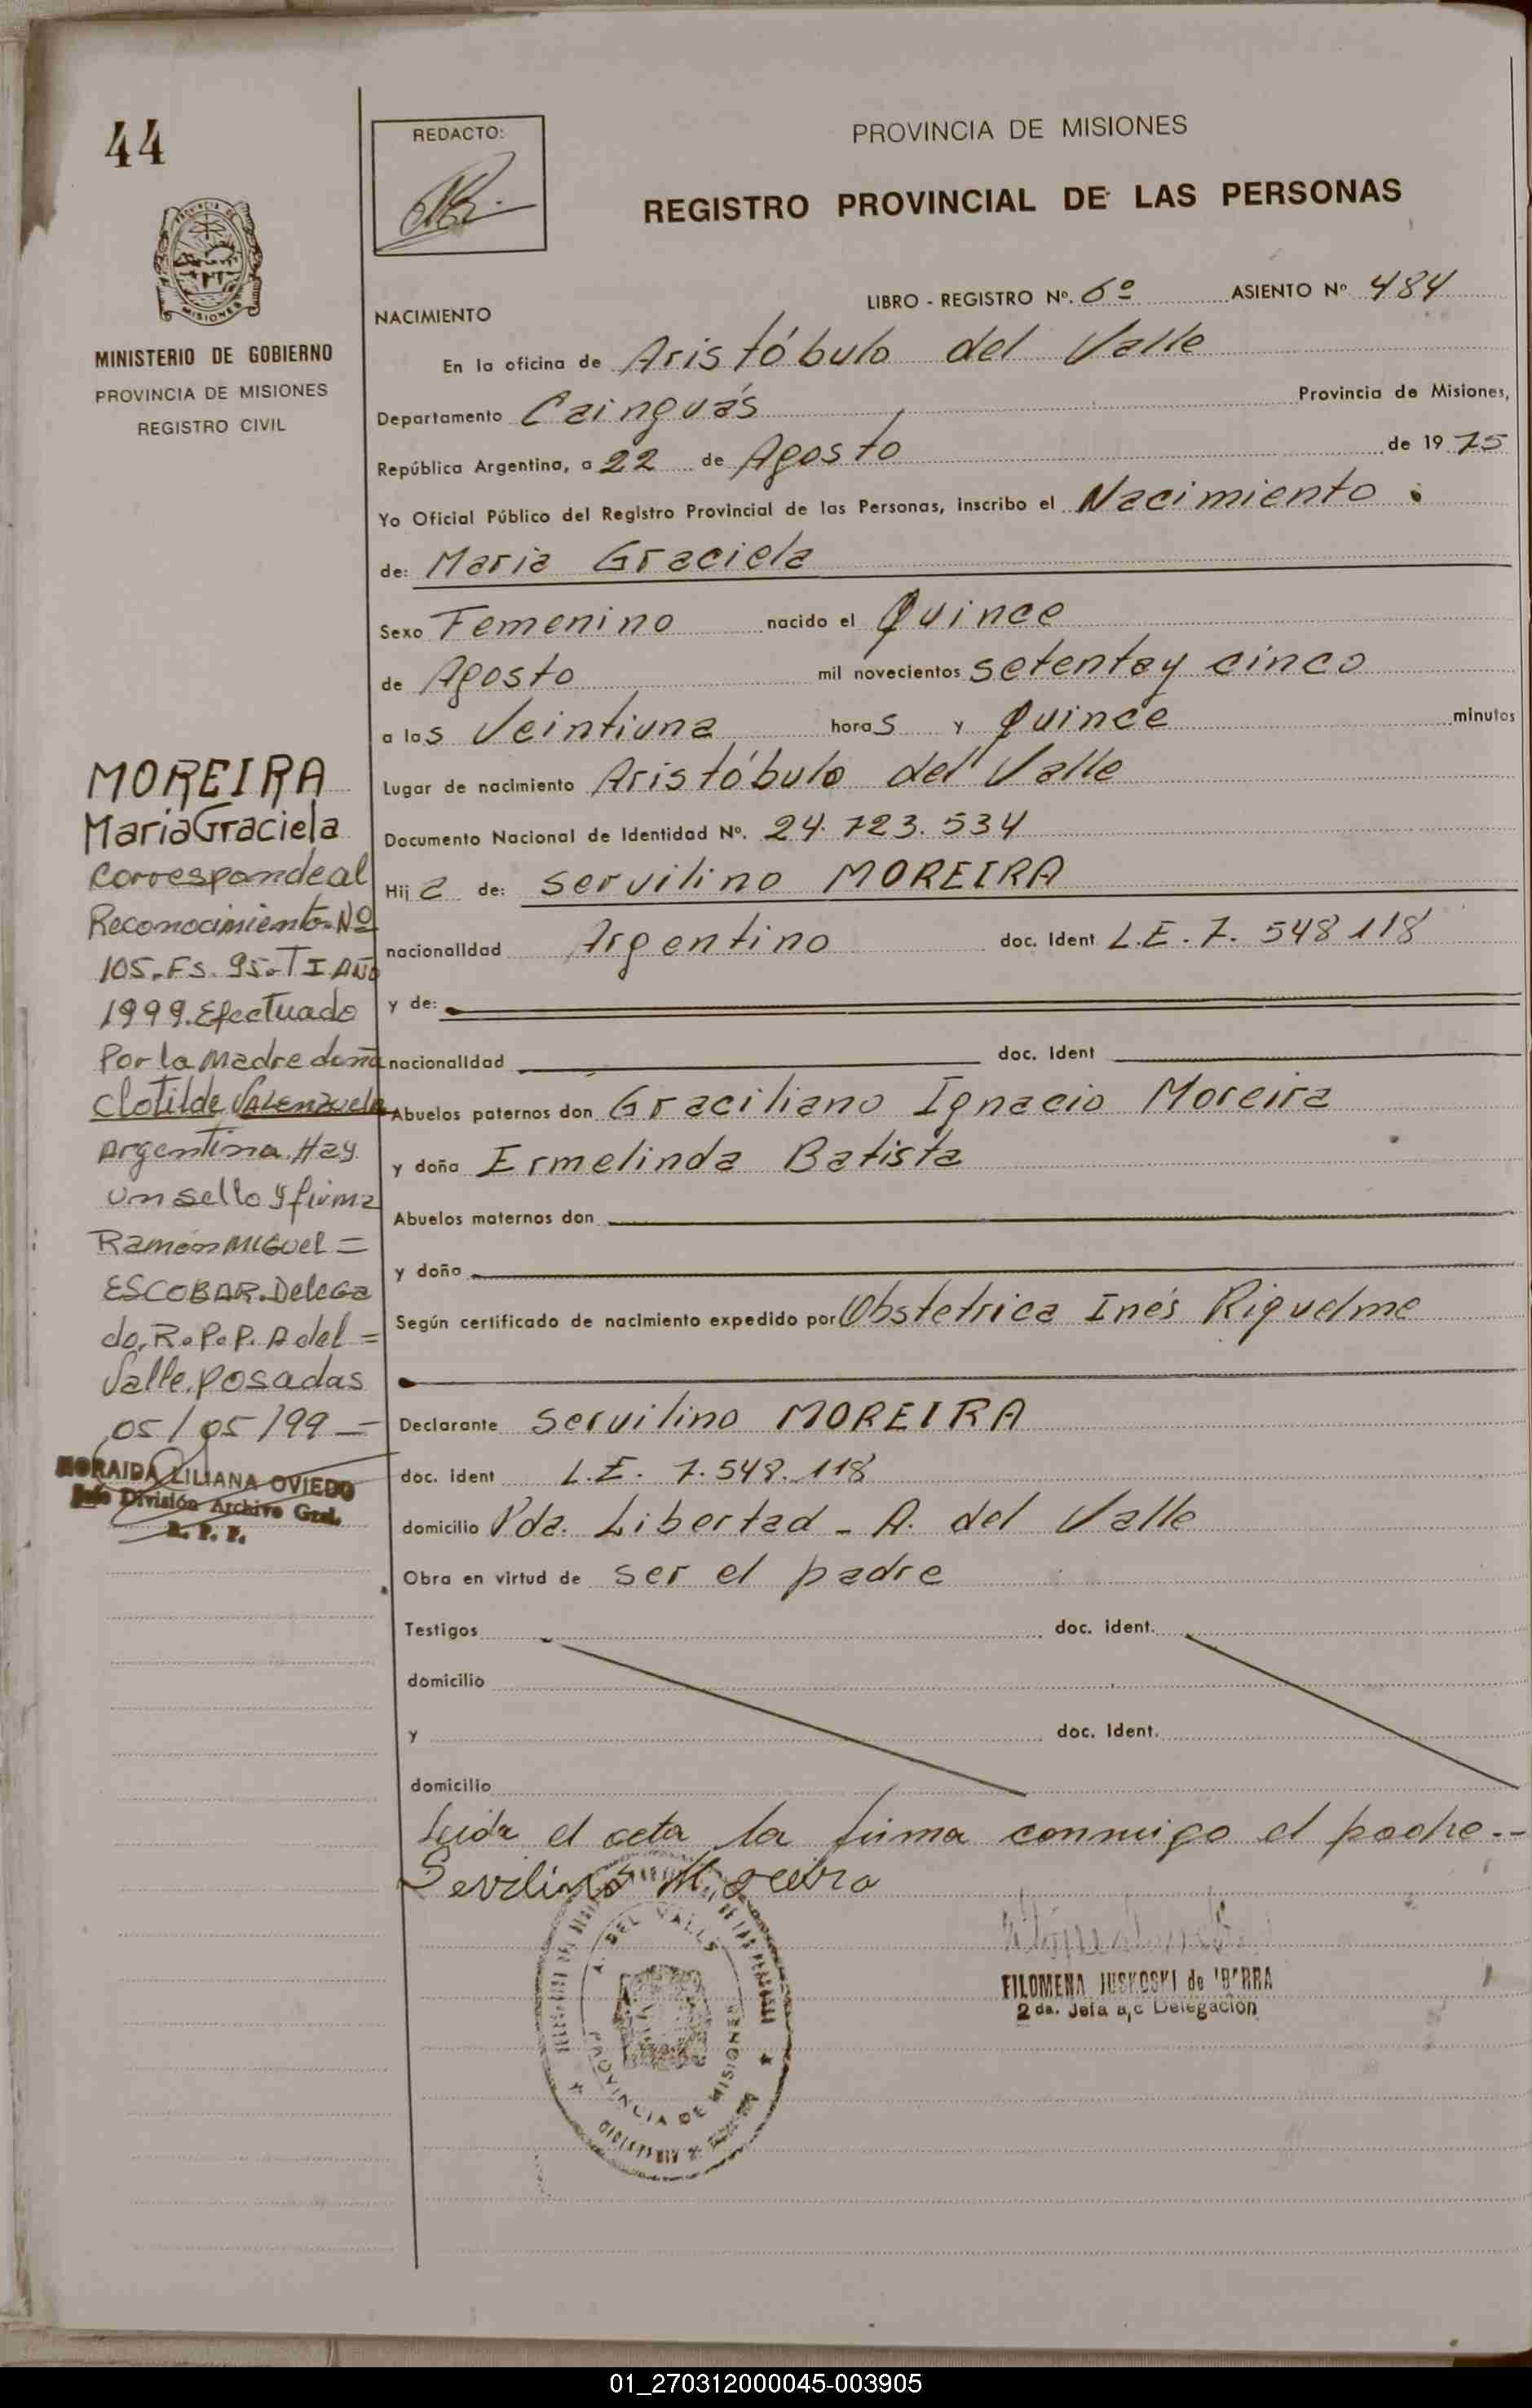 44
MINISTERIO DE GOBIERNO
PROVINCIA DE MISIONES
REGISTRO CIVIL
REDACTO:
PROVINCIA DE MISIONES
REGISTRO PROVINCIAL DE LAS PERSONAS
NACIMIENTO LIBRO - REGISTRO Nº. 6º ASIENTO Nº 484
En la oficina de Aristóbulo del Valle
Departamento Cainguás Provincia de Misiones,
República Argentina, a 22 de Agosto de 1975
Yo Oficial Público del Registro Provincial de las Personas, inscribo el Nacimiento
de: Maria Graciela
Sexo Femenino nacido el Quince
de Agosto mil novecientos setentay cinco
a las Veintiuna horas y Quince minutos
Lugar de nacimiento Aristóbulo del Valle
Documento Nacional de Identidad Nº. 24.723.534
Hija de: Servilino MOREIRA
nacionalidad Argentino doc. Ident L.E. 7.548118
y de:
nacionalidad doc. Ident
Abuelos paternos don Graciliano Ignacio Moreira
y doña Ermelinda Batista
Abuelos maternos don
y doña
Según certificado de nacimiento expedido por Obstetrica Inés Riquelme
Declarante Servilino MOREIRA
doc. ident L.E. 7.548.118
domicilio Pda. Libertad - A. del Valle
Obra en virtud de ser el padre
Testigos doc. ident.
domicilio
y doc. Ident.
domicilio
Leida el acta la firma conmigo el padre.--
Sevilino Moreira
MOREIRA
Maria Graciela
Corresponde al
Reconocimiento Nº
105. Fs. 95. T I AÑO
1999. Efectuado
Por la Madre doña
Clotilde Valenzuela
Argentina. Hay
un sello y firma
Ramón Miguel =
ESCOBAR. Delega
do, R.P.P. A del =
Valle. Posadas
05/05/99 -
LILIANA OVIEDO
Jefe División Archivo Gral.
R. P. P.
DEL VALLE
PROVINCIA DE MISIONES
FILOMENA JUSKOSKI de IBARRA
2 da. Jefa a,c Delegación
01_270312000045-003905